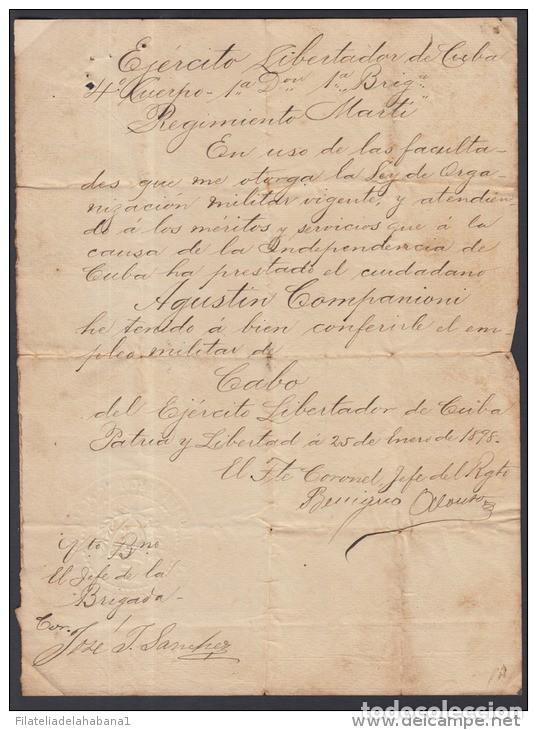 Ejército Libertador de Cuba
4º Cuerpo - 1ª Don 1ª Brigª
Regimiento "Martí"
En uso de las faculta-
des que me otorga la Ley de Orga-
nizacion militar vigente, y atendien-
do á los méritos y servicios que á la
causa de la Independencia de
Cuba ha prestado el ciudadano
Agustin Companioni
he tenido a bien conferirle el em-
pleo militar de
Cabo
del Ejército Libertador de Cuba
Patria y Libertad á 25 de Enero de 1898.
El Tte Coronel Jefe del Rgto
Benigno
Vto Bno
El Jefe de la
Brigada
Cor.
José T. Sanchez
Filateliadelahabana1
todocoleccion.net